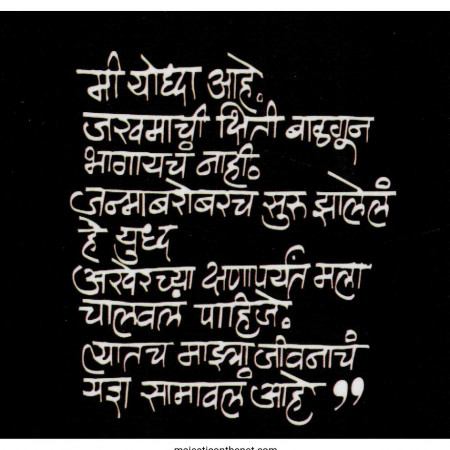 मी योध्दा आहे.
जखमाची भिती बाळगून
भागायचं नाही.
जन्माबरोबरच सुरु झालेलं
हे युध्द
अखेरच्या क्षणापर्यंत मला
चालवलं पाहिजे.
त्यातच माझ्या जीवनाचं
यश सामावलं आहे ”
majesticonthenet.com